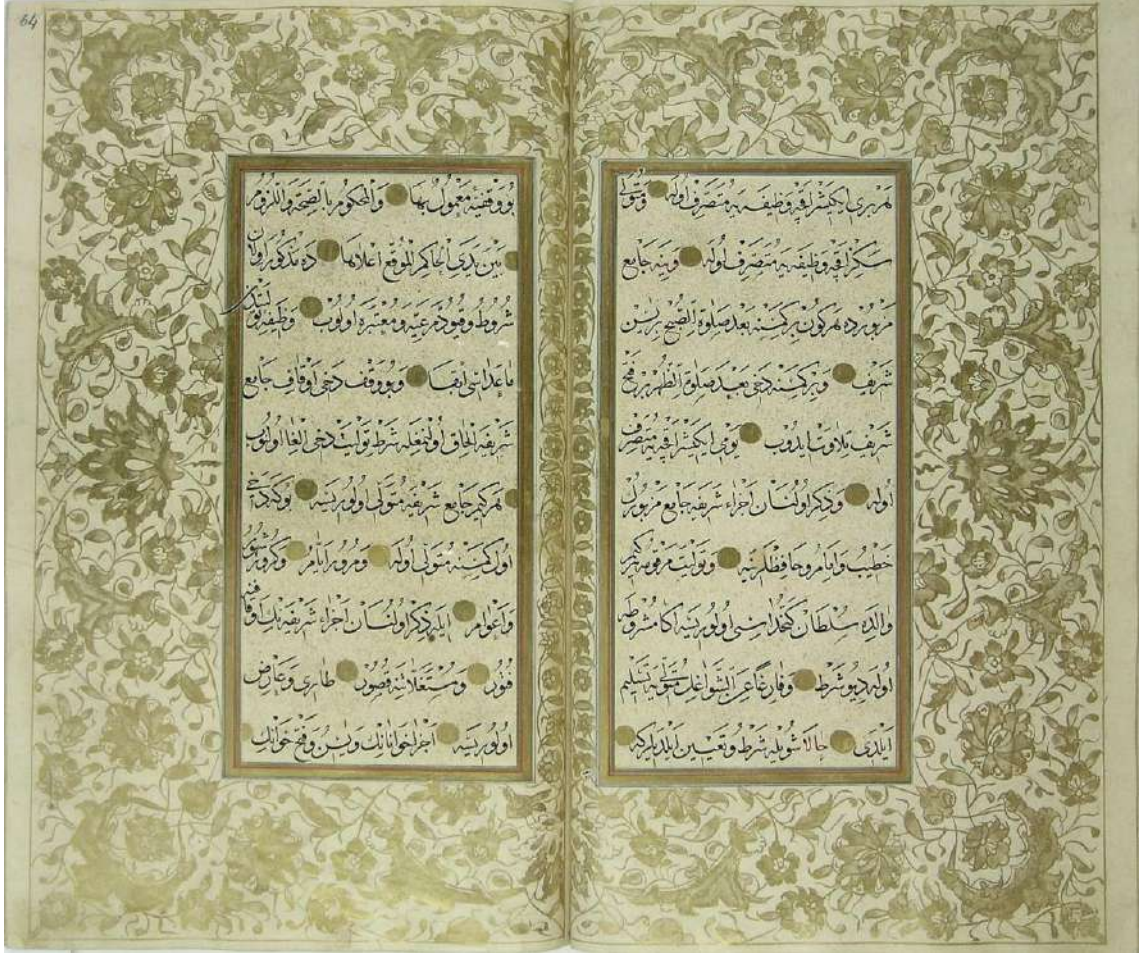 هر بری ایکیشر اقچه وظیفه یه متصرف اوله و متولی
سکز اقچه وظیفه یه متصرف اوله وینه جامع
مزبورده هر کون بر کمسنه بعد صلوة الصبح بر یس
شریف وبر کمسنه دخی بعد صلوة الظهر بر فتح
شریف تلاوت ایدوب یومی ایکیشر اقچه یه متصرف
اوله وذکر اولنان اجزاء شریفه جامع مزبورک
خطیب وامام وحافظلرینه وتولیت مرقومه کیم
والده سلطان کتخداسی اولورسه اکا مشروطه
اوله دیو شرط وفارغا عن الشواغل متولی یه تسلیم
ایلدی حالا شویله شرط وتعیین ایلدیلر که
بو وقفیهٔ معمول بها والمحکوم بالصحة واللزوم
بین یدی الحاکم الموقع اعلاها ده مذکور اولان
شروط وقیود مرعیه ومعتبره اولوب وظیفه تولیتدن
ماعداسنی ابقا وبو وقف دخی اوقاف جامع
شریفه الحاق اولنمغله شرط تولیت دخی الغا اولنوب
هر کیم جامع شریفه متولی اولورسه بوکه دخی
اول کمسنه متولی اوله ومرور ایام وکرور شهور
واعوام ایله ذکر اولنان اجزاء شریفه نک اوقافنه
فتور ومستغلاتنه قصور طاری وعارض
اولورسه اجزا خوانانک ویس وفتح خوانک
64